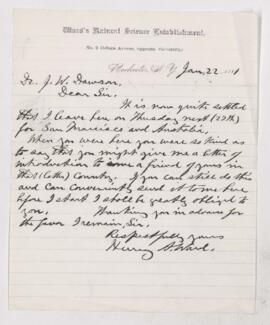 Ward's Natural Science Establishment,
No. 2 College Avenue, opposite University,
Rochester, N. Y. Jan. 22
Dr. J. W. Dawson,
Dear Sir.
It is now quite settled
that I leave here on Thursday next (29th)
for San Francisco and Australia.
When you were here you were so kind as
to say that you might give me a letter of
introduction to some a friend of yours in
that (latter) Country. If you can still do this
and can conveniently send it to me here
before I start I shall be greatly obliged to
you. Thanking you in advance for
the favor I remain, Sir,
Respectfully yours
Henry A. Ward.